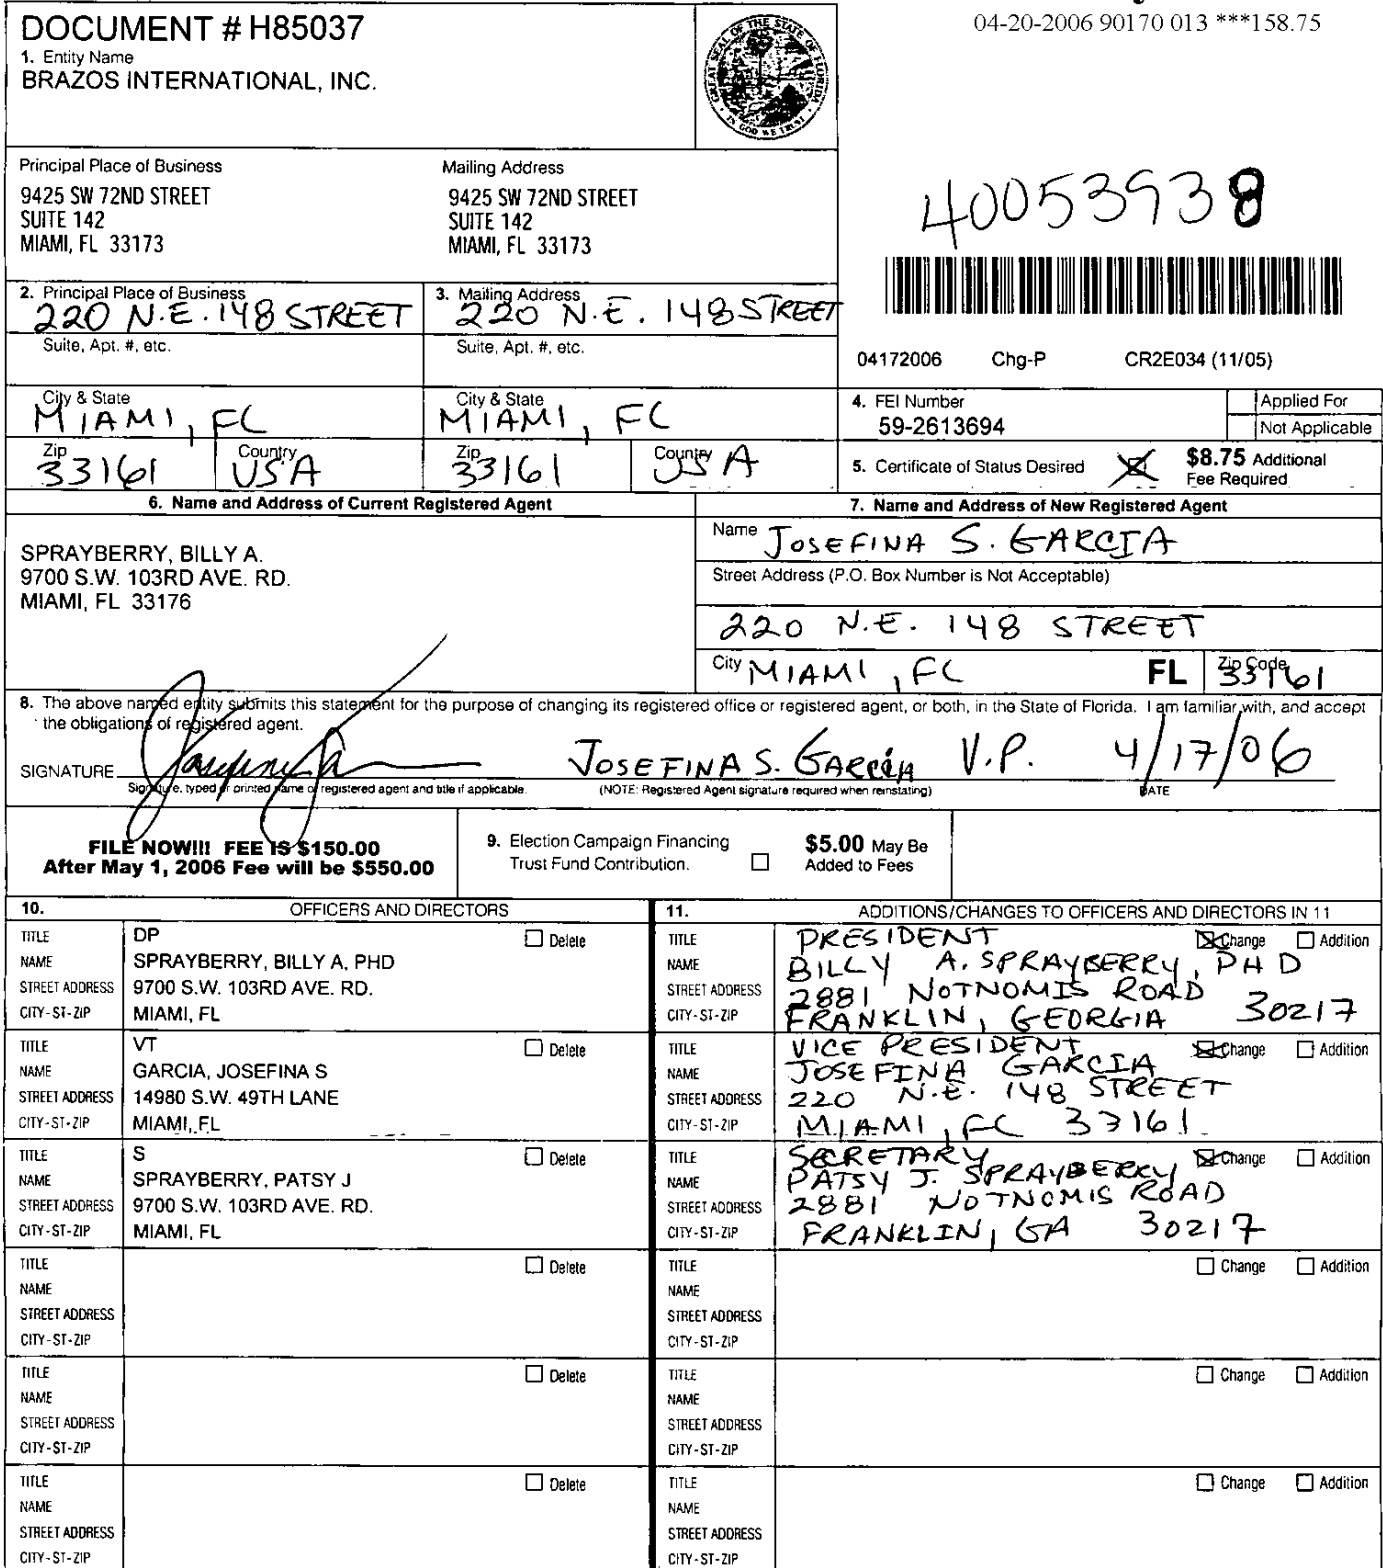 DOCUMENT # H85037
04-20-2006 90170 013 ***158.75
1. Entity Name
BRAZOS INTERNATIONAL, INC.
GREAT SEAL OF THE STATE OF FLORIDA
IN GOD WE TRUST
Principal Place of Business
9425 SW 72ND STREET
SUITE 142
MIAMI, FL 33173
Mailing Address
9425 SW 72ND STREET
SUITE 142
MIAMI, FL 33173
40053938
2. Principal Place of Business
220 N.E. 148 STREET
3. Mailing Address
220 N.E. 148 STREET
Suite, Apt. #, etc.
Suite, Apt. #, etc.
04172006 Chg-P CR2E034 (11/05)
City & State
MIAMI, FL
City & State
MIAMI, FL
Zip
33161
Country
USA
Zip
33161
Country
USA
4. FEI Number
59-2613694
Applied For
Not Applicable
5. Certificate of Status Desired
$8.75 Additional
Fee Required
6. Name and Address of Current Registered Agent
SPRAYBERRY, BILLY A.
9700 S.W. 103RD AVE. RD.
MIAMI, FL 33176
7. Name and Address of New Registered Agent
Name JOSEFINA S. GARCIA
Street Address (P.O. Box Number is Not Acceptable)
220 N.E. 148 STREET
City MIAMI, FL FL Zip Code 33161
8. The above named entity submits this statement for the purpose of changing its registered office or registered agent, or both, in the State of Florida. I am familiar with, and accept
the obligations of registered agent.
SIGNATURE JOSEFINA S. GARCIA V.P. 4/17/06
Signature, typed or printed name of registered agent and title if applicable. (NOTE: Registered Agent signature required when reinstating) DATE
FILE NOW!!! FEE IS $150.00
After May 1, 2006 Fee will be $550.00
9. Election Campaign Financing
Trust Fund Contribution.
$5.00 May Be
Added to Fees
10. OFFICERS AND DIRECTORS
TITLE DP Delete
NAME SPRAYBERRY, BILLY A, PHD
STREET ADDRESS 9700 S.W. 103RD AVE. RD.
CITY-ST-ZIP MIAMI, FL
TITLE VT Delete
NAME GARCIA, JOSEFINA S
STREET ADDRESS 14980 S.W. 49TH LANE
CITY-ST-ZIP MIAMI, FL
TITLE S Delete
NAME SPRAYBERRY, PATSY J
STREET ADDRESS 9700 S.W. 103RD AVE. RD.
CITY-ST-ZIP MIAMI, FL
TITLE Delete
NAME
STREET ADDRESS
CITY-ST-ZIP
TITLE Delete
NAME
STREET ADDRESS
CITY-ST-ZIP
TITLE Delete
NAME
STREET ADDRESS
CITY-ST-ZIP
11. ADDITIONS/CHANGES TO OFFICERS AND DIRECTORS IN 11
TITLE PRESIDENT Change Addition
NAME BILLY A. SPRAYBERRY, PHD
STREET ADDRESS 2881 NOTNOMIS ROAD
CITY-ST-ZIP FRANKLIN, GEORGIA 30217
TITLE VICE PRESIDENT Change Addition
NAME JOSEFINA GARCIA
STREET ADDRESS 220 N.E. 148 STREET
CITY-ST-ZIP MIAMI, FL 33161
TITLE SECRETARY Change Addition
NAME PATSY J. SPRAYBERRY
STREET ADDRESS 2881 NOTNOMIS ROAD
CITY-ST-ZIP FRANKLIN, GA 30217
TITLE Change Addition
NAME
STREET ADDRESS
CITY-ST-ZIP
TITLE Change Addition
NAME
STREET ADDRESS
CITY-ST-ZIP
TITLE Change Addition
NAME
STREET ADDRESS
CITY-ST-ZIP